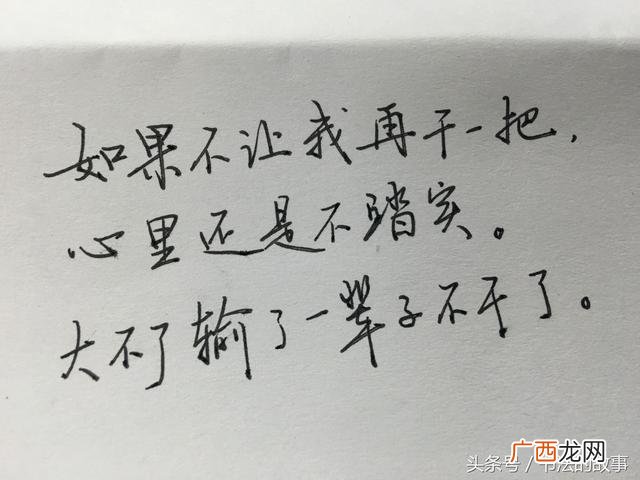 如果不让我再干一把,
心里还是不踏实。
大不了输了一辈子不干了。
广西龙网
头条号／书法的故事